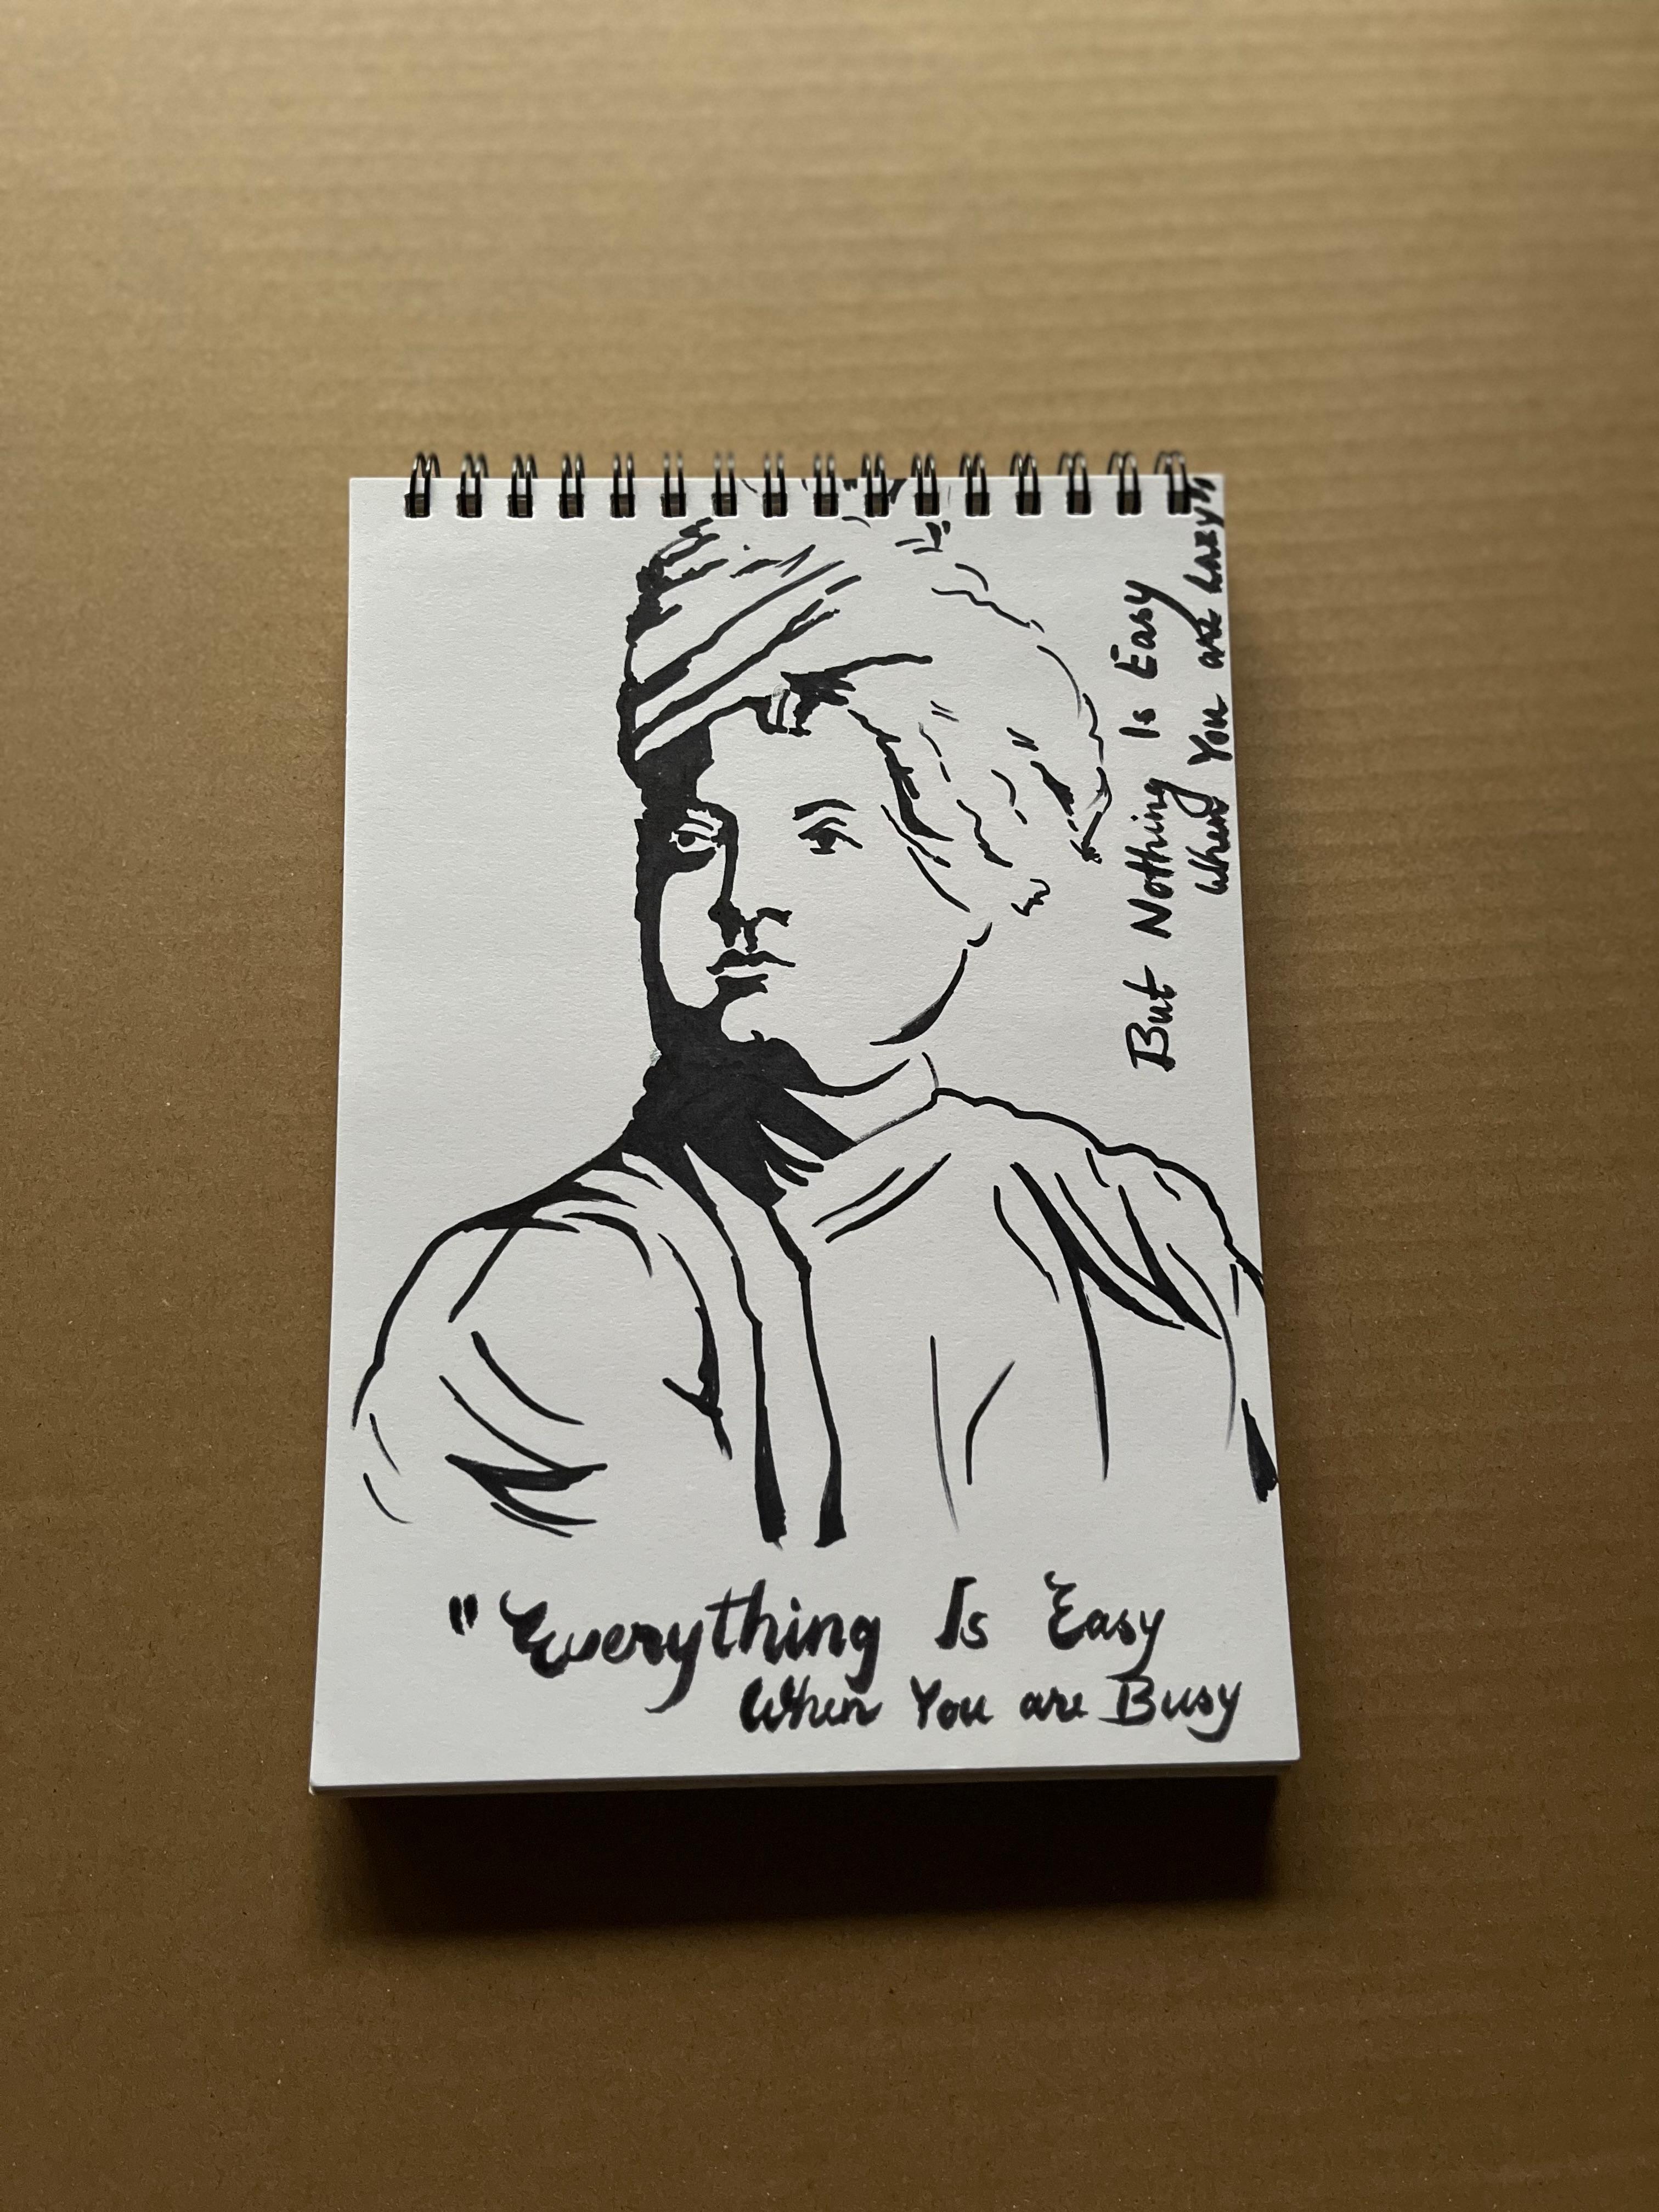 "Everything Is Easy
When You are Busy
But Nothing Is Easy
When You are Lazy"